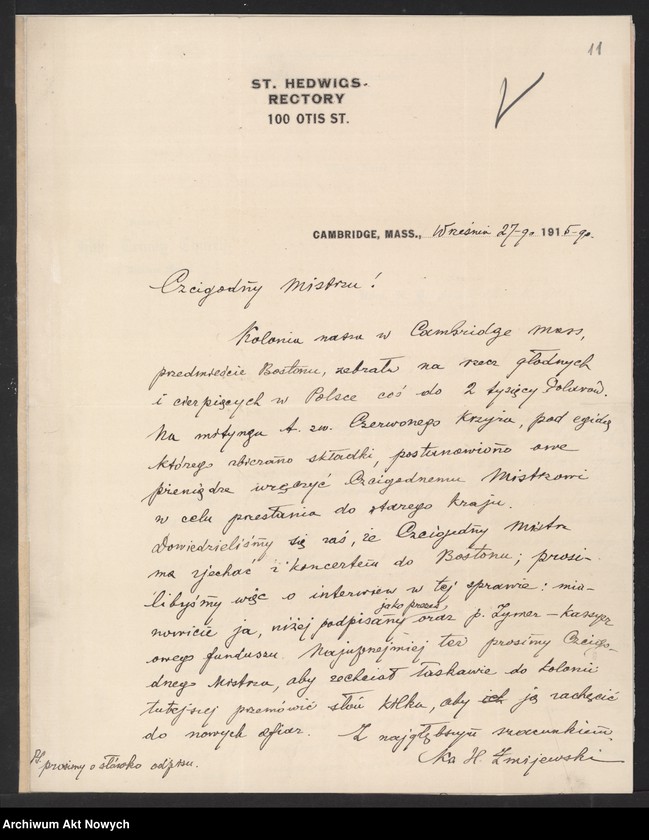 11
ST. HEDWIGS
RECTORY
100 OTIS ST.
CAMBRIDGE, MASS., Września 27-go 1915-go.
Czcigodny Mistrzu!
Kolonia nasza w Cambridge Mass,
przedmieście Bostonu, zebrała na rzecz głodnych
i cierpiących w Polsce coś do 2 tysięcy Dolarów.
Na mityngu t. zw. Czerwonego Krzyża, pod egidą
którego zbierano składki, postanowiono owe
pieniądze wręczyć Czcigodnemu Mistrzowi
w celu przesłania do starego kraju.
Dowiedzieliśmy się zaś, że Czcigodny Mistrz
ma zjechać z koncertem do Bostonu; prosi-
libyśmy więc o interwiew w tej sprawie: mia-
nowicie ja, niżej podpisany jako prezes oraz p. Zymer - kassyer
owego funduszu. Najuprzejmiej też prosimy Czcigo-
dnego Mistrza, aby zechciał łaskawie do kolonii
tutejszej przemówić słów kilka, aby ich ją zachęcić
do nowych ofiar. Z najgłębszym szacunkiem.
Ks H. Żmijewski
PS. prosimy o słówko odpisu.
Archiwum Akt Nowych